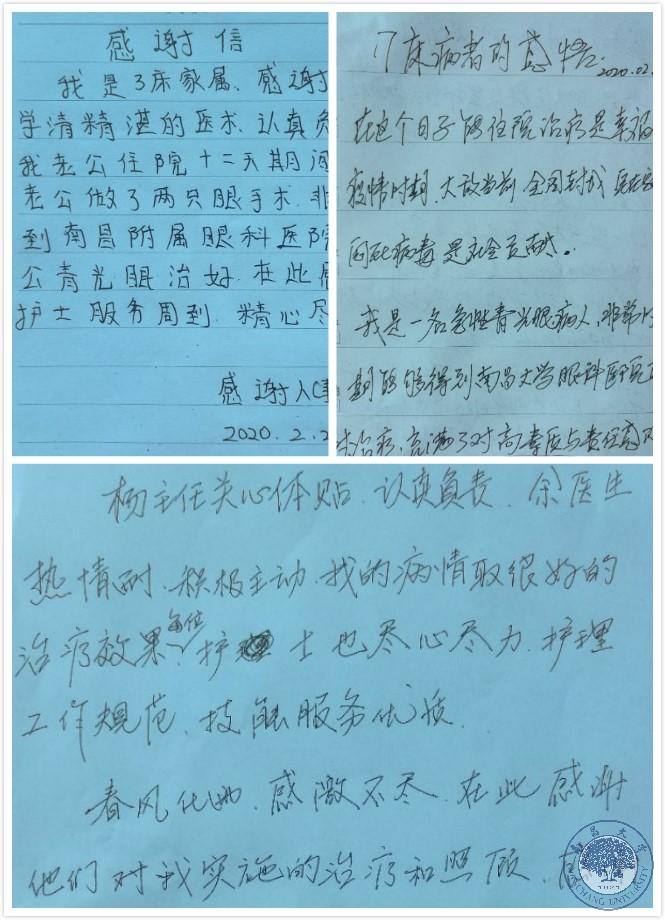 感谢信
我是3床家属、感谢
学清精湛的医术、认真负
我老公住院十二天期间
老公做了两只眼手术.非
到南昌附属眼科医院
公青光眼治好.在此感
护士服务周到.精心尽
感谢人
2020.2.2
17床病者的感悟.
2020.02.
在这个日子 住院治疗是幸福
疫情时期.大敌当前 全国封城
病毒 是
我是一名急性青光眼病人,非常时
期 能够得到南昌大学眼科医院
治疗,充满了对高素质与责任高
杨主任关心体贴.认真负责.余医生
热情耐.积极主动.我的病情取很好的
治疗效果.每位护士也尽心尽力.护理
工作规范.技能服务优质.
春风化雨.感激不尽.在此感谢
他们对我实施的治疗和照顾.
南昌大学
NANCHANG UNIVERSITY
1921